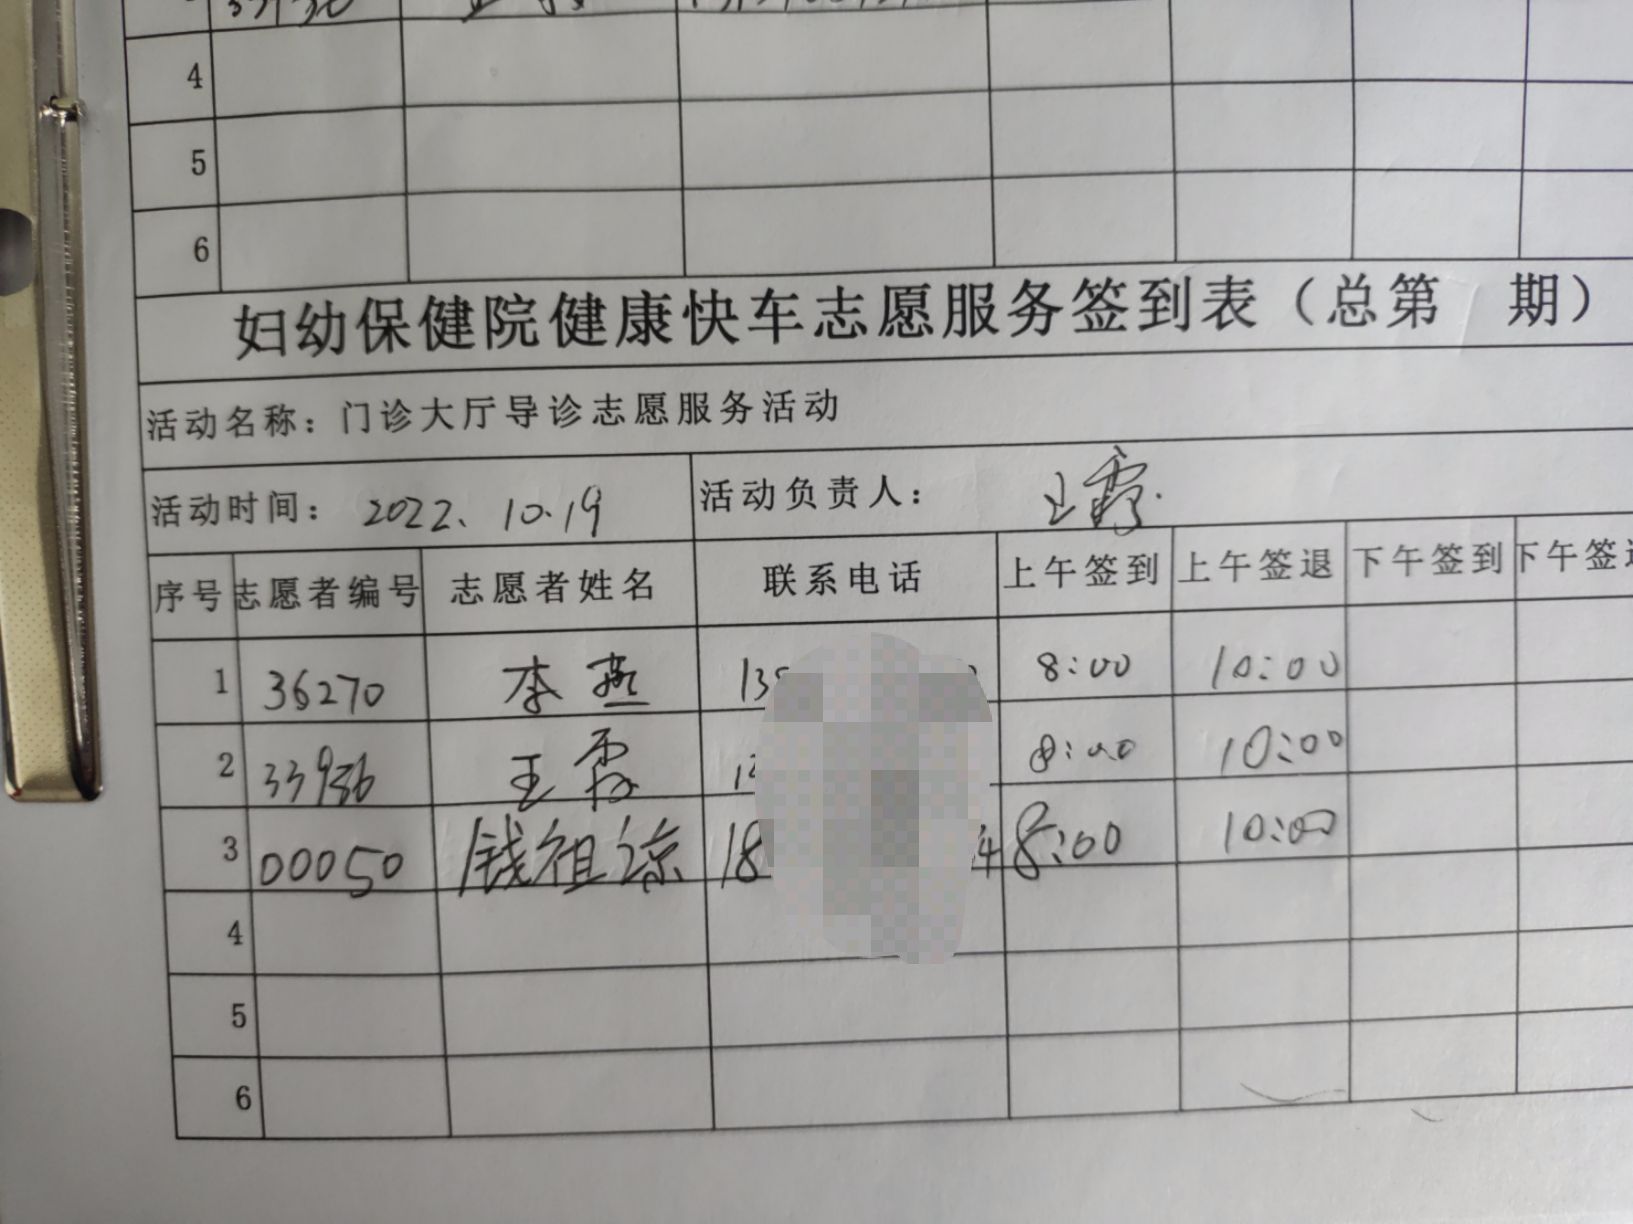 4
5
6
妇幼保健院健康快车志愿服务签到表（总第 期）
活动名称：门诊大厅导诊志愿服务活动
活动时间： 2022、10.19 活动负责人： 王霞
序号 志愿者编号 志愿者姓名 联系电话 上午签到 上午签退 下午签到 下午签
1 36270 李燕 135 8:00 10:00
2 33936 王霞 8:00 10:00
3 00050 钱祖琼 18 4 8:00 10:00
4
5
6